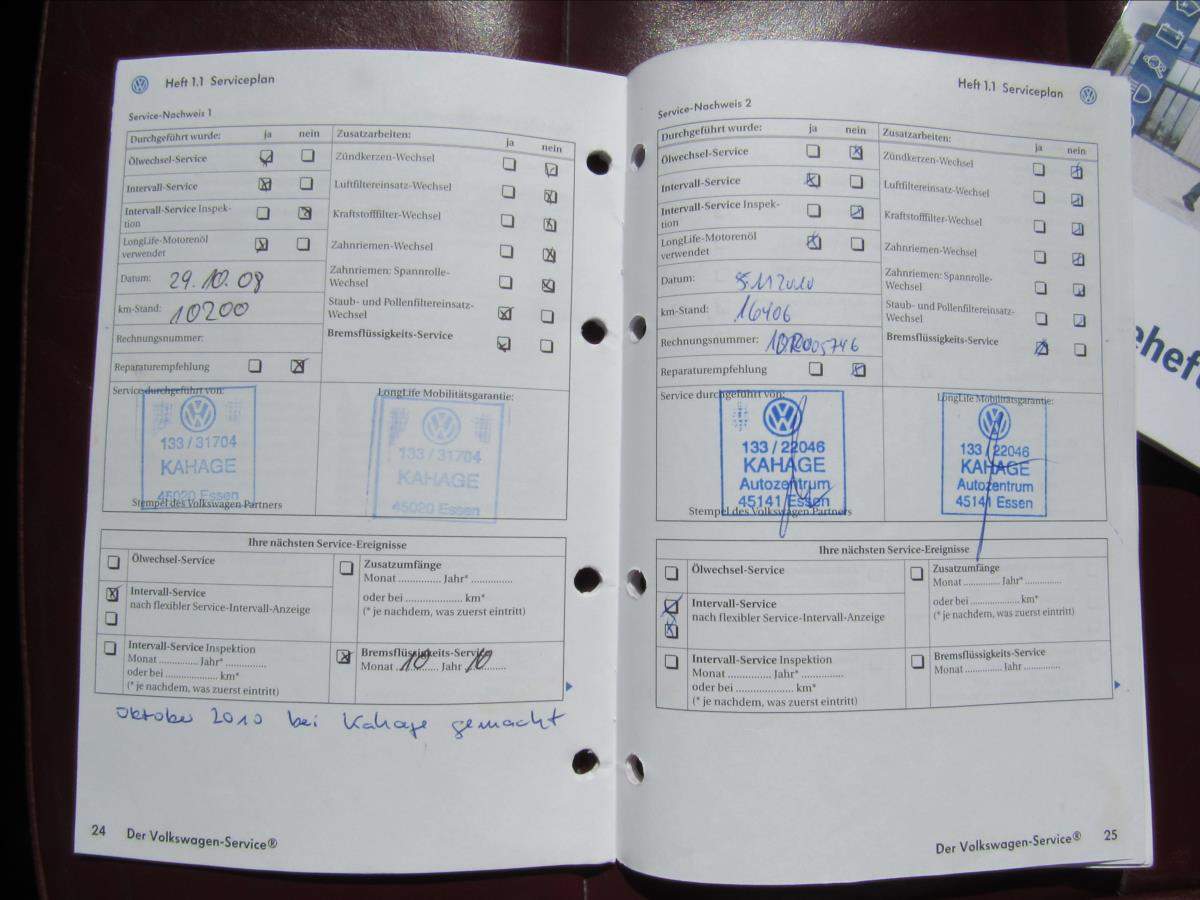 Heft 1.1 Serviceplan
Service-Nachweis 1
Durchgeführt wurde: ja nein
Ölwechsel-Service
Intervall-Service
Intervall-Service Inspek-
tion
LongLife-Motorenöl
verwendet
Datum: 29.10.08
km-Stand: 10200
Rechnungsnummer:
Reparaturempfehlung
Zusatzarbeiten: ja nein
Zündkerzen-Wechsel
Luftfiltereinsatz-Wechsel
Kraftstofffilter-Wechsel
Zahnriemen-Wechsel
Zahnriemen: Spannrolle-
Wechsel
Staub- und Pollenfiltereinsatz-
Wechsel
Bremsflüssigkeits-Service
Service durchgeführt von:
133 / 31704
KAHAGE
45020 Essen
Stempel des Volkswagen Partners
LongLife Mobilitätsgarantie:
133 / 31704
KAHAGE
45020 Essen
Ihre nächsten Service-Ereignisse
Ölwechsel-Service
Intervall-Service
nach flexibler Service-Intervall-Anzeige
Intervall-Service Inspektion
Monat ............. Jahr* .............
oder bei .................... km*
(* je nachdem, was zuerst eintritt)
Zusatzumfänge
Monat ............. Jahr* .............
oder bei .................... km*
(* je nachdem, was zuerst eintritt)
Bremsflüssigkeits-Service
Monat 10 Jahr 10
Oktober 2010 bei Kahage gemacht
24 Der Volkswagen-Service®
Heft 1.1 Serviceplan
Service-Nachweis 2
Durchgeführt wurde: ja nein
Ölwechsel-Service
Intervall-Service
Intervall-Service Inspek-
tion
LongLife-Motorenöl
verwendet
Datum:
km-Stand: 16406
Rechnungsnummer: 10R005746
Reparaturempfehlung
Zusatzarbeiten: ja nein
Zündkerzen-Wechsel
Luftfiltereinsatz-Wechsel
Kraftstofffilter-Wechsel
Zahnriemen-Wechsel
Zahnriemen: Spannrolle-
Wechsel
Staub- und Pollenfiltereinsatz-
Wechsel
Bremsflüssigkeits-Service
Service durchgeführt von:
133 / 22046
KAHAGE
Autozentrum
45141 Essen
Stempel des Volkswagen Partners
LongLife Mobilitätsgarantie:
133 / 22046
KAHAGE
Autozentrum
45141 Essen
Ihre nächsten Service-Ereignisse
Ölwechsel-Service
Intervall-Service
nach flexibler Service-Intervall-Anzeige
Intervall-Service Inspektion
Monat ............. Jahr* .............
oder bei .................... km*
(* je nachdem, was zuerst eintritt)
Zusatzumfänge
Monat ............. Jahr* .............
oder bei .................... km*
(* je nachdem, was zuerst eintritt)
Bremsflüssigkeits-Service
Monat ............. Jahr .............
Der Volkswagen-Service® 25